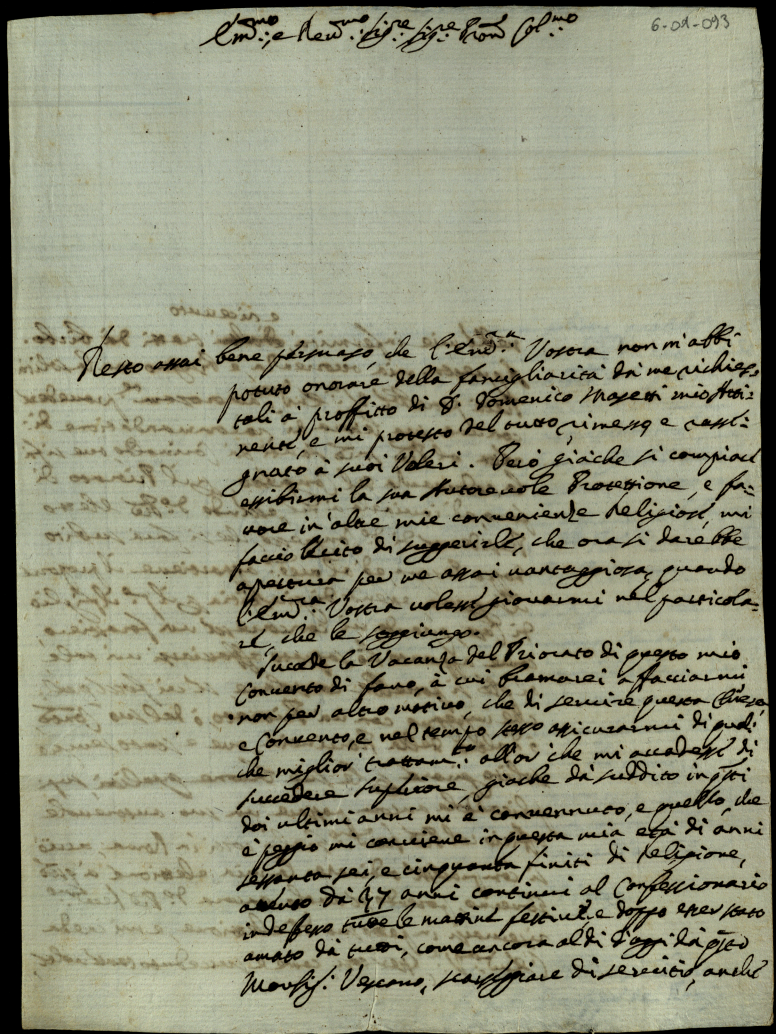 6-01-093
Em.mo: e Rev.mo: Sig.re: Sig.re: Pron Col.mo:
Resto assai bene persuaso, che l'Em.a Vostra non m'abbi
potuto onorare della famigliarità da me richies-
tali à proffitto di D. Domenico Masetti mio Atti-
nente, e mi protesto del tutto rimesso, e rasse-
gnato à suoi Voleri. Però giache si compiace
essibirmi la sua Autorevole Protezione, e fa-
vore in altre mie convenienze Religiose, mi
faccio lecito di suggerirle, che ora si darebbe
apertura per me assai vantaggiosa, quando
l'Em.a: Vostra volesse giovarmi nel particola-
re, che le soggiungo.
Succede la Vacanza del Priorato di questo mio
Convento di Fano, à cui bramarei affacciarmi
non per altro motivo, che di servire questa Chiesa,
e Convento, e nel tempo stesso assicurarmi di qual-
che miglior trattam.to: allor che mi accadesse di
succedere superiore, giache da suddito in q.sti
doi ultimi anni mi è convennuto, e quello, che
è peggio mi conviene in questa mia età di anni
sessanta sei, e cinquanta finiti di Religione,
da 37 anni continui al Confessionario
indefesso tutte le mattine festive, e doppo esser stato
amato da tutti, come ancora al dì d'oggi da q.sto
Monsig.: Vescovo, scarseggiare di servitio, anche